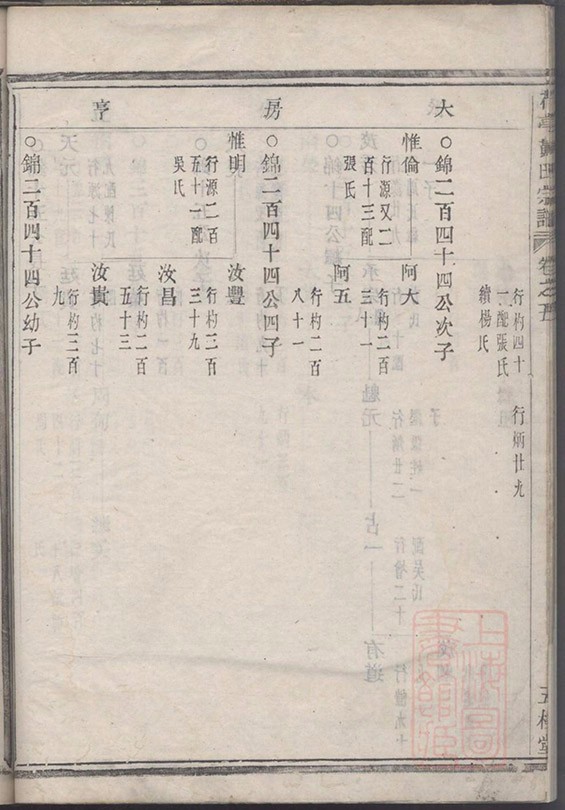 宗譜
卷之五
行杓四十
一配張氏
續楊氏
行炳廿九
大
○錦二百四十四公次子
惟倫
行源又二
百十三配
張氏
阿大
行杓二百
三十一
阿五
行杓二百
八十一
房
○錦二百四十四公四子
惟明
行源二百
五十一配
吳氏
汝豐
行杓二百
三十九
汝昌
行杓二百
五十三
汝貴
行杓二百
九
亨
○錦二百四十四公幼子